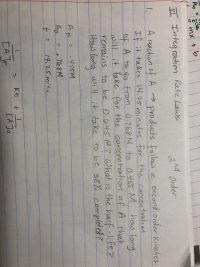 mx + b
III Integration Rate Laws
2nd order
1. A reaction of A → products follows a second order kinetics
If it takes 14.25 minutes for the concentration
of A to go from 0.768M to 0.455 M, how long
will it take for the concentration of A that
remains to be 0.645 M? What is the half-life?
How long will it take to be 38% completed?
At = .455M
A0 = .768M
t = 14.25 min
1/[A]t = Kt + 1/[A]0